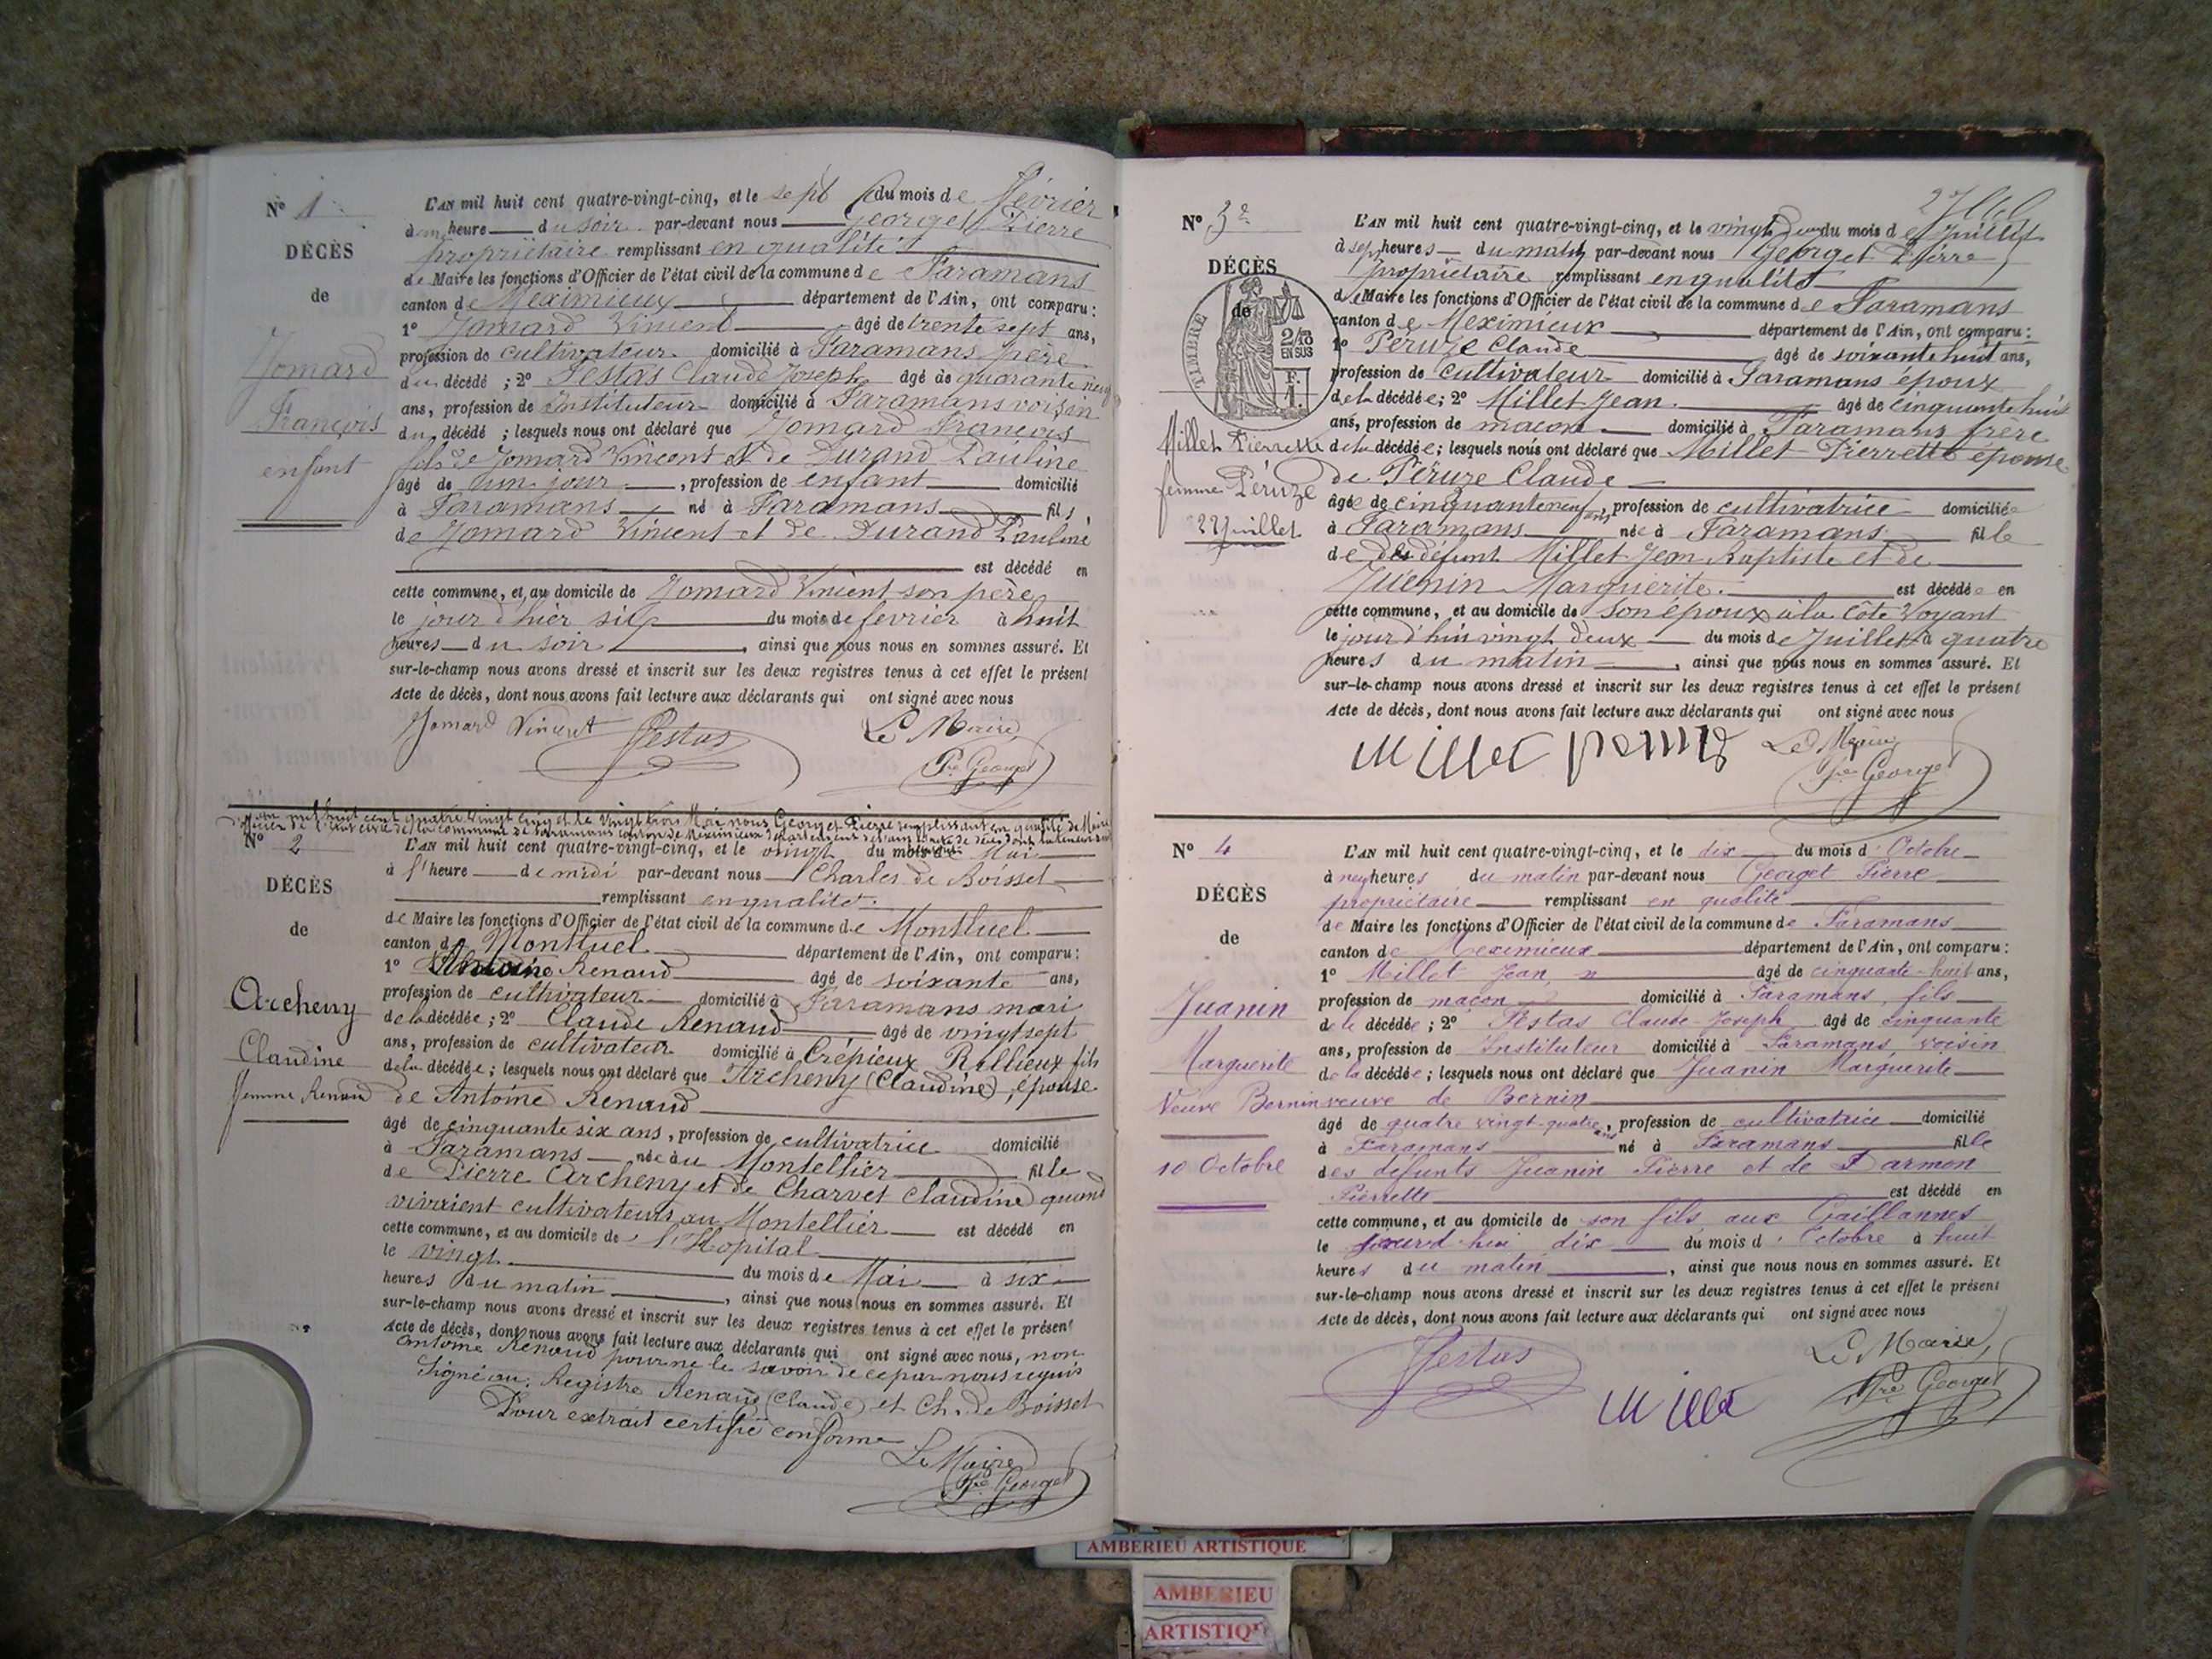 N° 1
DÉCÈS
de
Jomard
François
enfant
L'AN mil huit cent quatre-vingt-cinq, et le sept du mois de Février
à une heure du soir par-devant nous Georget Pierre
propriétaire remplissant en qualité
de Maire les fonctions d'Officier de l'état civil de la commune de Faramans
canton de Meximieux département de l'Ain, ont comparu :
1° Jomard Vincent âgé de trente sept ans,
profession de cultivateur domicilié à Faramans père
du décédé ; 2° Festas Claude Joseph âgé de quarante neuf
ans, profession de Instituteur domicilié à Faramans voisin
du décédé ; lesquels nous ont déclaré que Jomard François
fils de Jomard Vincent et de Durand Pauline
âgé de un jour, profession de enfant domicilié
à Faramans né à Faramans fils
de Jomard Vincent et de Durand Pauline
est décédé en
cette commune, et au domicile de Jomard Vincent son père
le jour d'hier six du mois de fevrier à huit
heures du soir, ainsi que nous nous en sommes assuré. Et
sur-le-champ nous avons dressé et inscrit sur les deux registres tenus à cet effet le présent
Acte de décès, dont nous avons fait lecture aux déclarants qui ont signé avec nous
Jomard Vincent Festas Le Maire
Pre Georget
L'an mil huit cent quatre vingt cinq et le vingt trois Mai nous Georget Pierre remplissant en qualité de Maire
officier de l'état civil de la commune de Faramans canton de Meximieux département de l'Ain
N° 2
DÉCÈS
de
Archeny
Claudine
femme Renaud
L'AN mil huit cent quatre-vingt-cinq, et le vingt du mois de Mai
à 1'heure de midi par-devant nous Charles de Boisset
remplissant en qualité
de Maire les fonctions d'Officier de l'état civil de la commune de Montluel
canton de Montluel département de l'Ain, ont comparu :
1° Antoine Renaud âgé de soixante ans,
profession de cultivateur domicilié à Faramans mari
de la décédée ; 2° Claude Renaud âgé de vingt sept
ans, profession de cultivateur domicilié à Crépieux Rillieux fils
de la décédée ; lesquels nous ont déclaré que Archeny (Claudine), épouse
de Antoine Renaud
âgé de cinquante six ans, profession de cultivatrice domicilié
à Faramans née au Montellier fille
de Pierre Archeny et de Charvet Claudine quand
vivaient cultivateurs au Montellier est décédé en
cette commune, et au domicile de l'Hopital
le vingt du mois de Mai à six
heures du matin, ainsi que nous nous en sommes assuré. Et
sur-le-champ nous avons dressé et inscrit sur les deux registres tenus à cet effet le présent
Acte de décès, dont nous avons fait lecture aux déclarants qui ont signé avec nous, non
Antoine Renaud pour ne le savoir de ce par nous requis
Signé au Registre Renaud (Claude) et Ch. de Boisset
Pour extrait certifié conforme
Le Maire
Pre Georget
N° 3e
DÉCÈS
de
TIMBRE
2/10
EN SUS
F.
1.
Millet Pierrette
femme Péruze
22 Juillet
L'AN mil huit cent quatre-vingt-cinq, et le vingt deux du mois de Juillet
à sept heures du matin par-devant nous Georget Pierre
propriétaire remplissant en qualité
de Maire les fonctions d'Officier de l'état civil de la commune de Faramans
canton de Meximieux département de l'Ain, ont comparu :
1° Peruze Claude âgé de soixante huit ans,
profession de Cultivateur domicilié à Faramans époux
de la décédée ; 2° Millet Jean âgé de cinquante huit
ans, profession de maçon domicilié à Faramans frère
de la décédée ; lesquels nous ont déclaré que Millet Pierrette épouse
de Péruze Claude
âgée de cinquante neuf ans, profession de cultivatrice domiciliée
à Faramans née à Faramans fille
de des défunt Millet Jean Baptiste et de
Juenin Marguerite est décédée en
cette commune, et au domicile de son époux à la Côte Voyant
le jour d'hui vingt deux du mois de Juillet à quatre
heures du matin, ainsi que nous nous en sommes assuré. Et
sur-le-champ nous avons dressé et inscrit sur les deux registres tenus à cet effet le présent
Acte de décès, dont nous avons fait lecture aux déclarants qui ont signé avec nous
Millet Le Maire
Pre Georget
N° 4
DÉCÈS
de
Juanin
Marguerite
Veuve Bernin
10 Octobre
L'AN mil huit cent quatre-vingt-cinq, et le dix du mois d'Octobre
à neuf heures du matin par-devant nous Georget Pierre
propriétaire remplissant en qualité
de Maire les fonctions d'Officier de l'état civil de la commune de Faramans
canton de Meximieux département de l'Ain, ont comparu :
1° Millet Jean âgé de cinquante-huit ans,
profession de maçon domicilié à Faramans, fils
de la décédée ; 2° Festas Claude-Joseph âgé de cinquante
ans, profession de Instituteur domicilié à Faramans, voisin
de la décédée ; lesquels nous ont déclaré que Juanin Marguerite
veuve de Bernin
âgé de quatre vingt-quatre ans, profession de cultivatrice domicilié
à Faramans né à Faramans fille
des défunts Juanin Pierre et de Darmon
Pierrette est décédé en
cette commune, et au domicile de son fils aux Gaillannes
le jourd'hui dix du mois d'Octobre à huit
heures du matin, ainsi que nous nous en sommes assuré. Et
sur-le-champ nous avons dressé et inscrit sur les deux registres tenus à cet effet le présent
Acte de décès, dont nous avons fait lecture aux déclarants qui ont signé avec nous
Festas Millet Le Maire
Pre Georget
AMBERIEU ARTISTIQUE
AMBERIEU
ARTISTIQUE